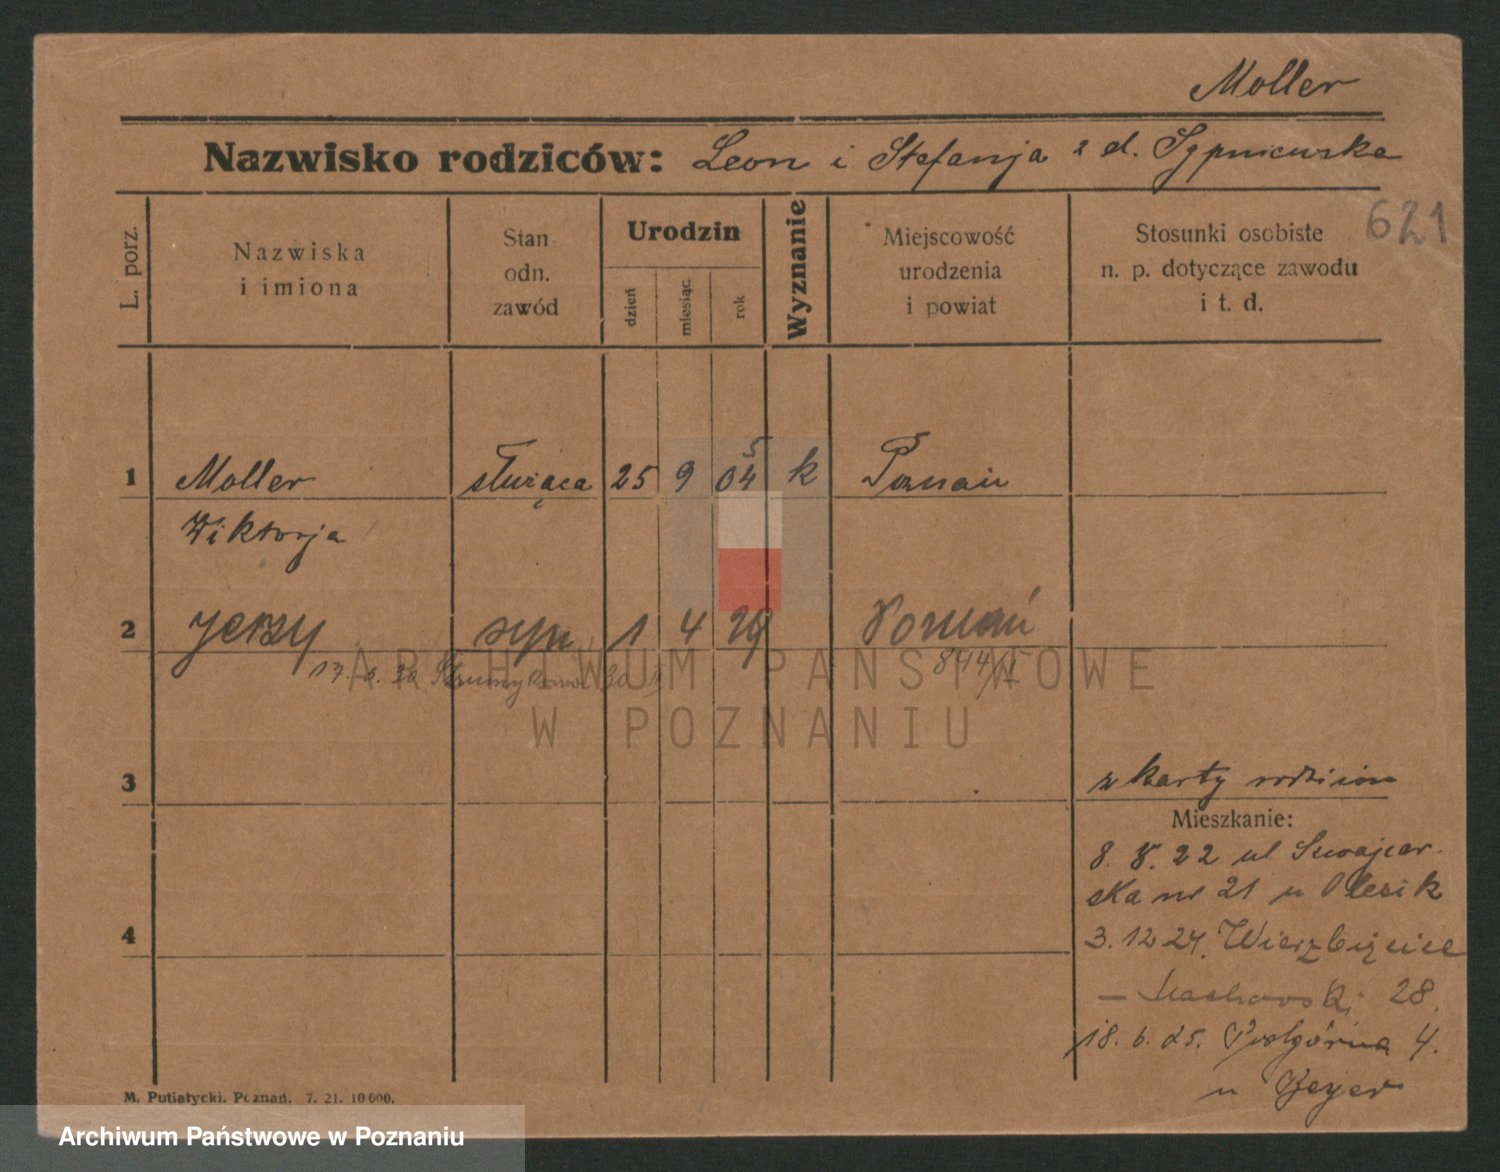 Moller
Nazwisko rodziców: Leon i Stefanja z d. Sypniewska
621
L. porz.
Nazwiska
i imiona
Stan
odn.
zawód
Urodzin
dzień
miesiąc
rok
Wyznanie
Miejscowość
urodzenia
i powiat
Stosunki osobiste
n. p. dotyczące zawodu
i t. d.
5
1 Moller służąca 25 9 04 k Poznań
Wiktorja
2 Jerzy syn 1 4 29 Poznań
844/II
ARCHIWUM PAŃSTWOWE
W POZNANIU
3
z karty rodziców
Mieszkanie:
8. 8. 22 ul Szwajcar-
ska nr 21 u Olesik
4
3. 12 24. Wierzbięcice
— Machowski 28.
18. 6. 25. Podgórna 4.
u Gejer
M. Putiatycki. Poznań. 7. 21. 10 000.
Archiwum Państwowe w Poznaniu